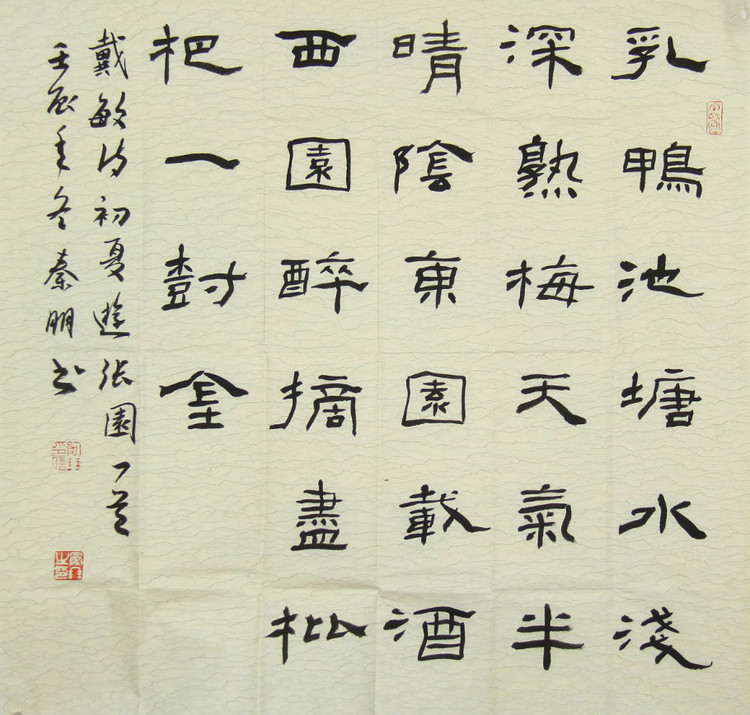 乳鴨池塘水淺
深熟梅天氣半
晴陰東園載酒
西園醉摘盡枇
杷一樹金
戴敏詩初夏遊張園一首
壬辰年冬秦朋书